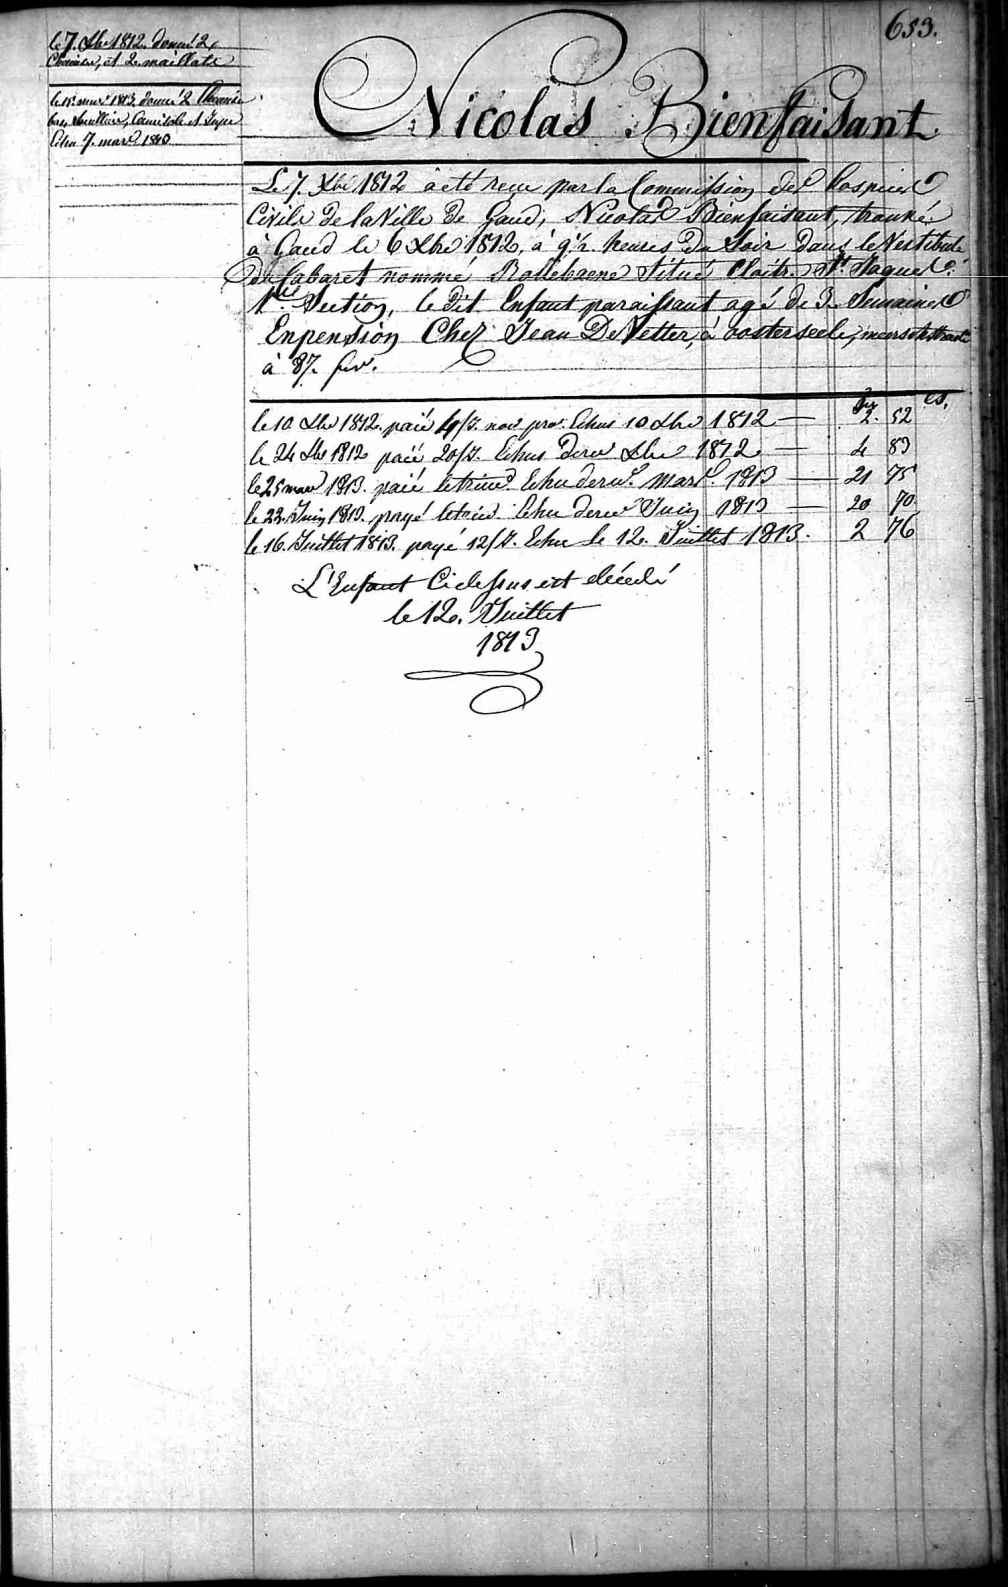 653.
le 7. Xbre 1812. donné 2
Chemises, et 2 maillots
le 15 mars 1813. donné 2 Chemises
bas, Souliers, Camisole et Jupe
Echu 7. mars 1813
Nicolas Bienfaisant.
Le 7. Xbre 1812 a été reçu par la Commission des hospices
Civils de la Ville de Gand, Nicolas Bienfaisant, trouvé
à Gand le 6 Xbre 1812, à 9½ heures du Soir dans le Vestibule
du Cabaret nommé Situé Cloître St. Jaques
1re Section, le dit Enfant paraissant agé de 3 Semaines
Enpension Chez Jean De Vetter, à oosterseele,
à 87. fr.
fr cs.
le 10 Xbre 1812. paié 4/7. Echus 10 Xbre 1812 — 2. 52
le 24 Xbre 1812 paié 20/7. Echus derer Xbre 1812 — 4 83
le 25 mars 1813. paié le trimre Echu derer Mars 1813 — 21 75
le 22. Juin 1813. payé le trim. Echu derer Juin 1813 — 20 70
le 16. Juillet 1813. payé 12/7. Echu le 12. Juillet 1813. 2 76
L'Enfant Cidessus est décédé
le 12. Juillet
1813